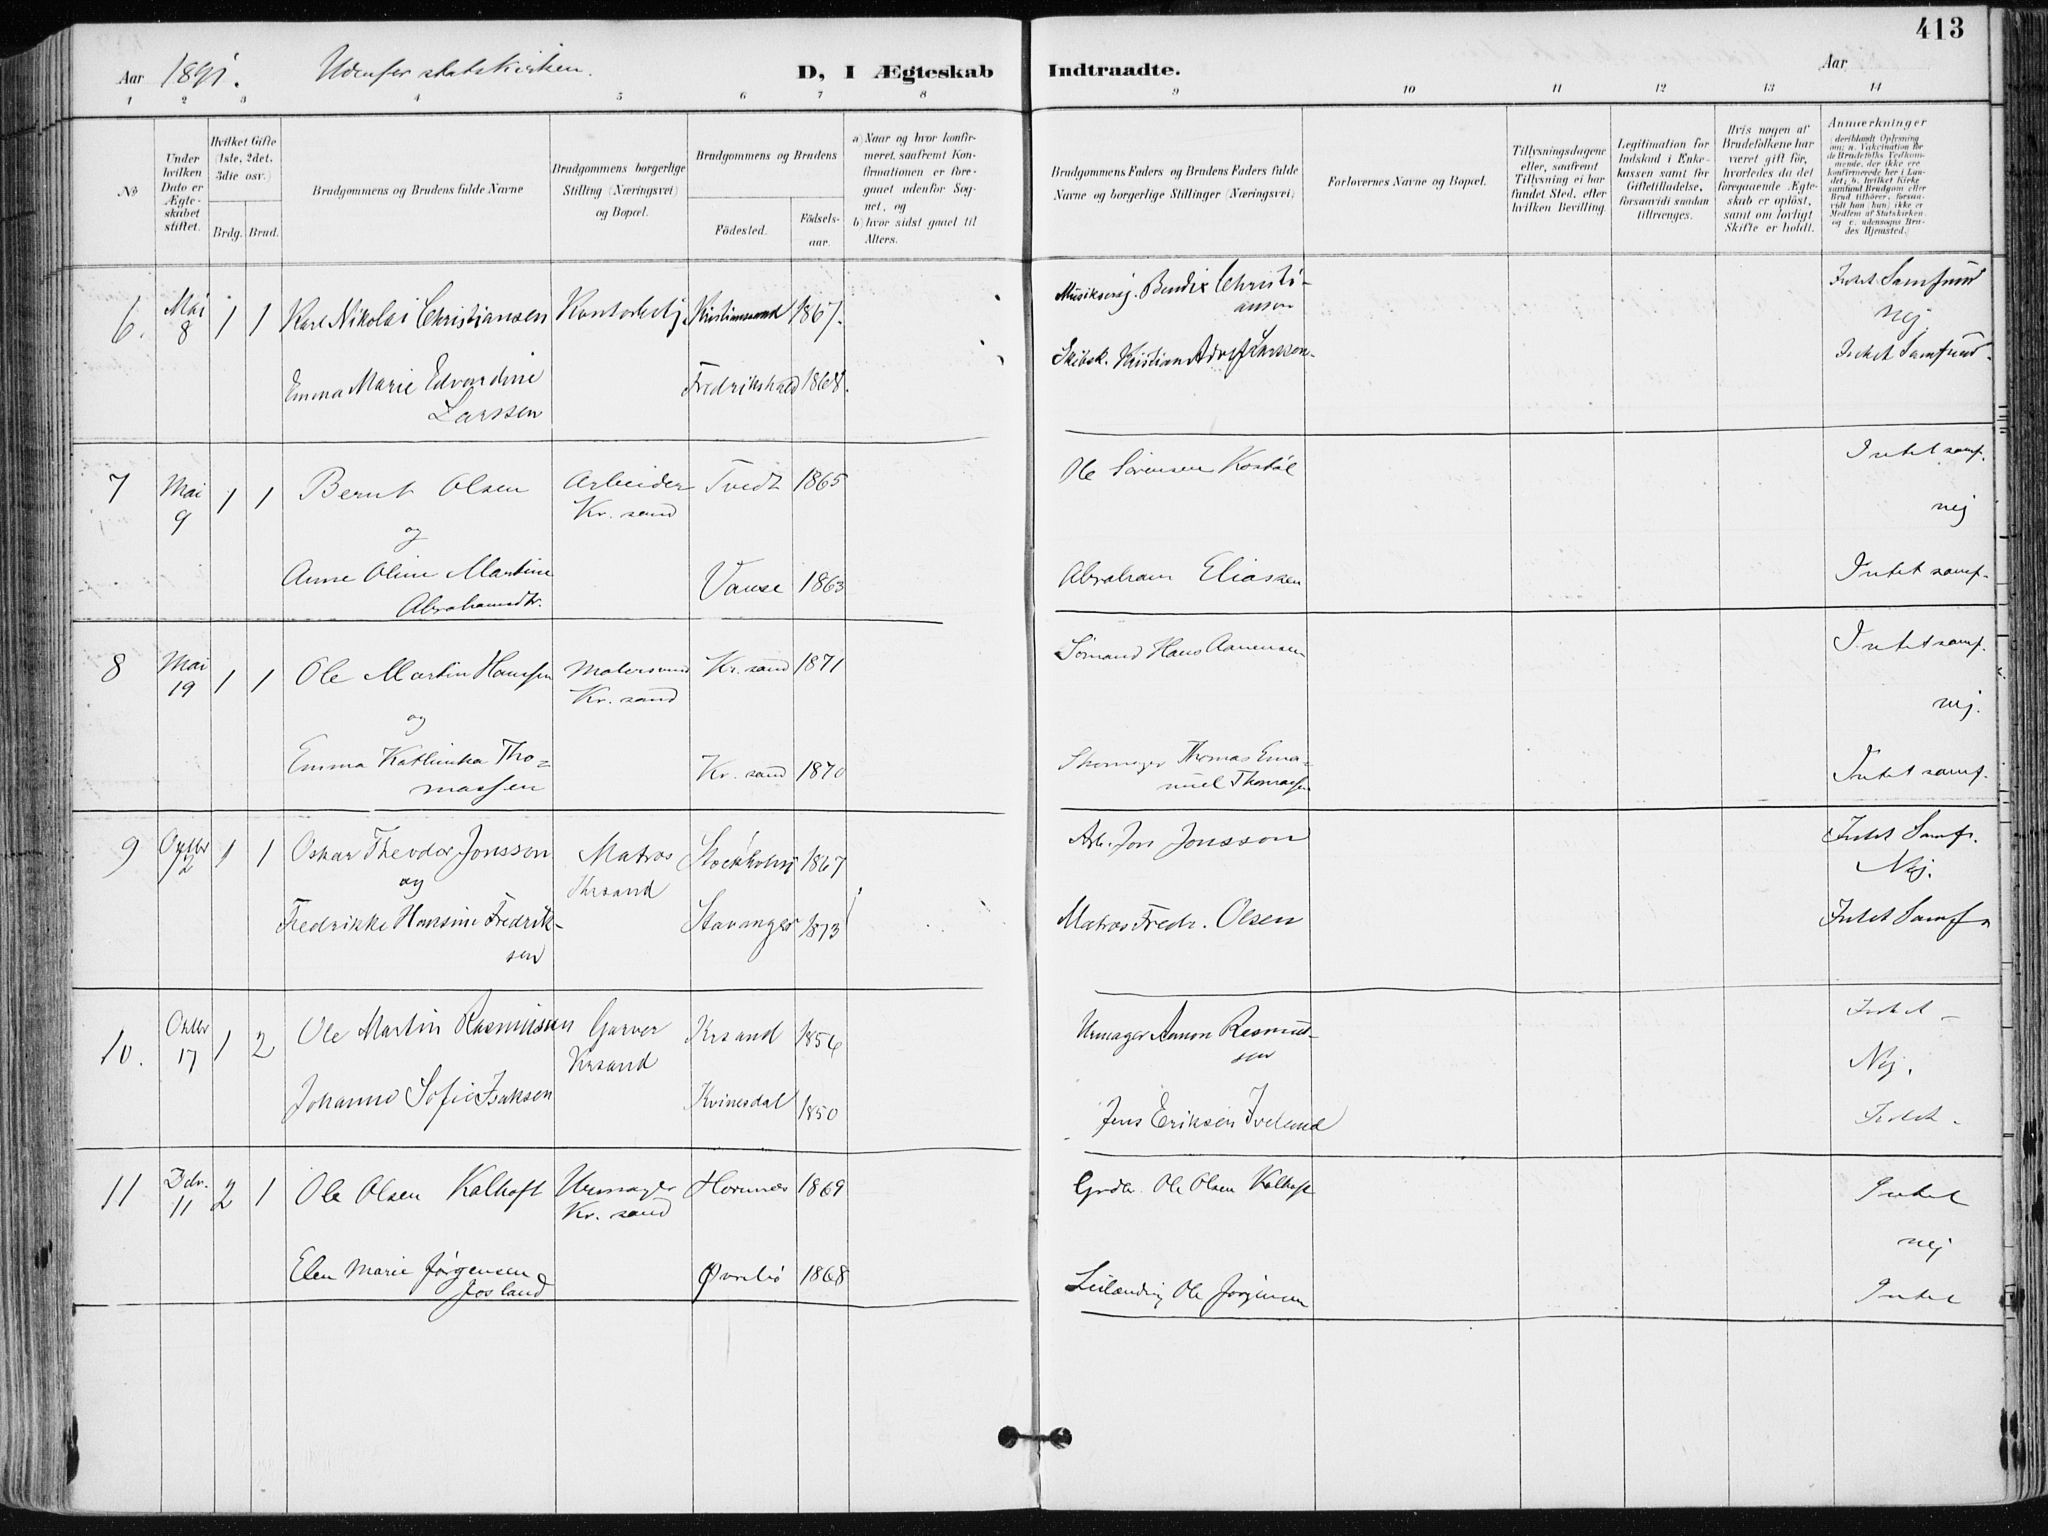 413
Aar 1891. Udenfor statskirken. D, I Ægteskab Indtraadte. Aar
1 2 3 4 5 6 7 8 9 10 11 12 13 14
No
Under hvilken Dato er Ægteskabet stiftet.
Hvilket Gifte (1ste, 2det, 3die osv.)
Brdg. Brud.
Brudgommens og Brudens fulde Navne
Brudgommens borgerlige Stilling (Næringsvei) og Bopæl.
Brudgommens og Brudens
Födested.
Födselsaar.
a) Naar og hvor konfirmeret, saafremt Konfirmationen er foregaaet udenfor Sognet, og
b) hvor sidst gaaet til Alters.
Brudgommens Faders og Brudens Faders fulde Navne og borgerlige Stillinger (Næringsvei)
Forlovernes Navne og Bopæl.
Tillysningsdagene eller, saafremt Tillysning ei har fundet Sted, efter hvilken Bevilling.
Legitimation for Indskud i Enkekassen samt for Giftetilladelse, forsaavidt saadan tiltrænges.
Hvis nogen af Brudefolkene har været gift för, hvorledes da det foregaaende Ægteskab er oplöst, samt om lovligt Skifte er holdt.
Anmærkninger
deriblandt Oplysning om: a. Vakcination for de Brudefolks Vedkommende, der ikke ere konfirmerede her i Landet; b. hvilket Kirkesamfund Brudgom eller Brud tilhörer, forsaavidt han (hun) ikke er Medlem af Statskirken, og c. udensogns Brudes Hjemsted.)
6. Mai 8 1 1 Karl Nikolai Christiansen Kontorbetj. Kristianssand 1867. Bendix Christiansen Intet Samfund
Nej
Emma Marie Edvardine Larssen Fredrikshald 1868. Skibsk. Kristian Adolf Larssen Intet Samfund
7 Mai 9 1 1 Bernt Olsen Arbeider Kr. sand Tvedt 1865 Ole Sörensen Intet samf.
og nej
Anne Oline Martine Abrahamsdtr. Vanse 1863 Abraham Eliassen Intet samf.
8 Mai 19 1 1 Ole Martin Hanssen Malersvend Kr. sand Kr. sand 1871 Sömand Hans Aanensen Intet samf.
og nej.
Emma Kathinka Thomassen Kr. sand 1870 Skomager Thomas Emanuel Thomassen Intet samf.
9 2 1 1 Oskar Theodor Jonsson Matros Krsand Stockholm 1867 Arb. Jon Jonsson Intet Samf.
og Nej.
Fredrikke Hansine Fredriksen Stavanger 1873 Matros Fredr. Olsen Intet Samf
10. 17 1 2 Ole Martin Rasmussen Garver Krsand Krsand 1856 Urmager Rasmussen Intet
Nej.
Johanne Sofie Isaksen Kvinesdal 1850 Jens Eriksen Intet
11 Dcbr. 11 2 1 Ole Olsen Kalhoft Urmager Kr. sand Hornnes 1869 Grdbr. Ole Olsen Kalhoft Intet
nej
Elen Marie Jørgensen Josland Øvrebö 1868 Leilænding Ole Jørgensen Intet